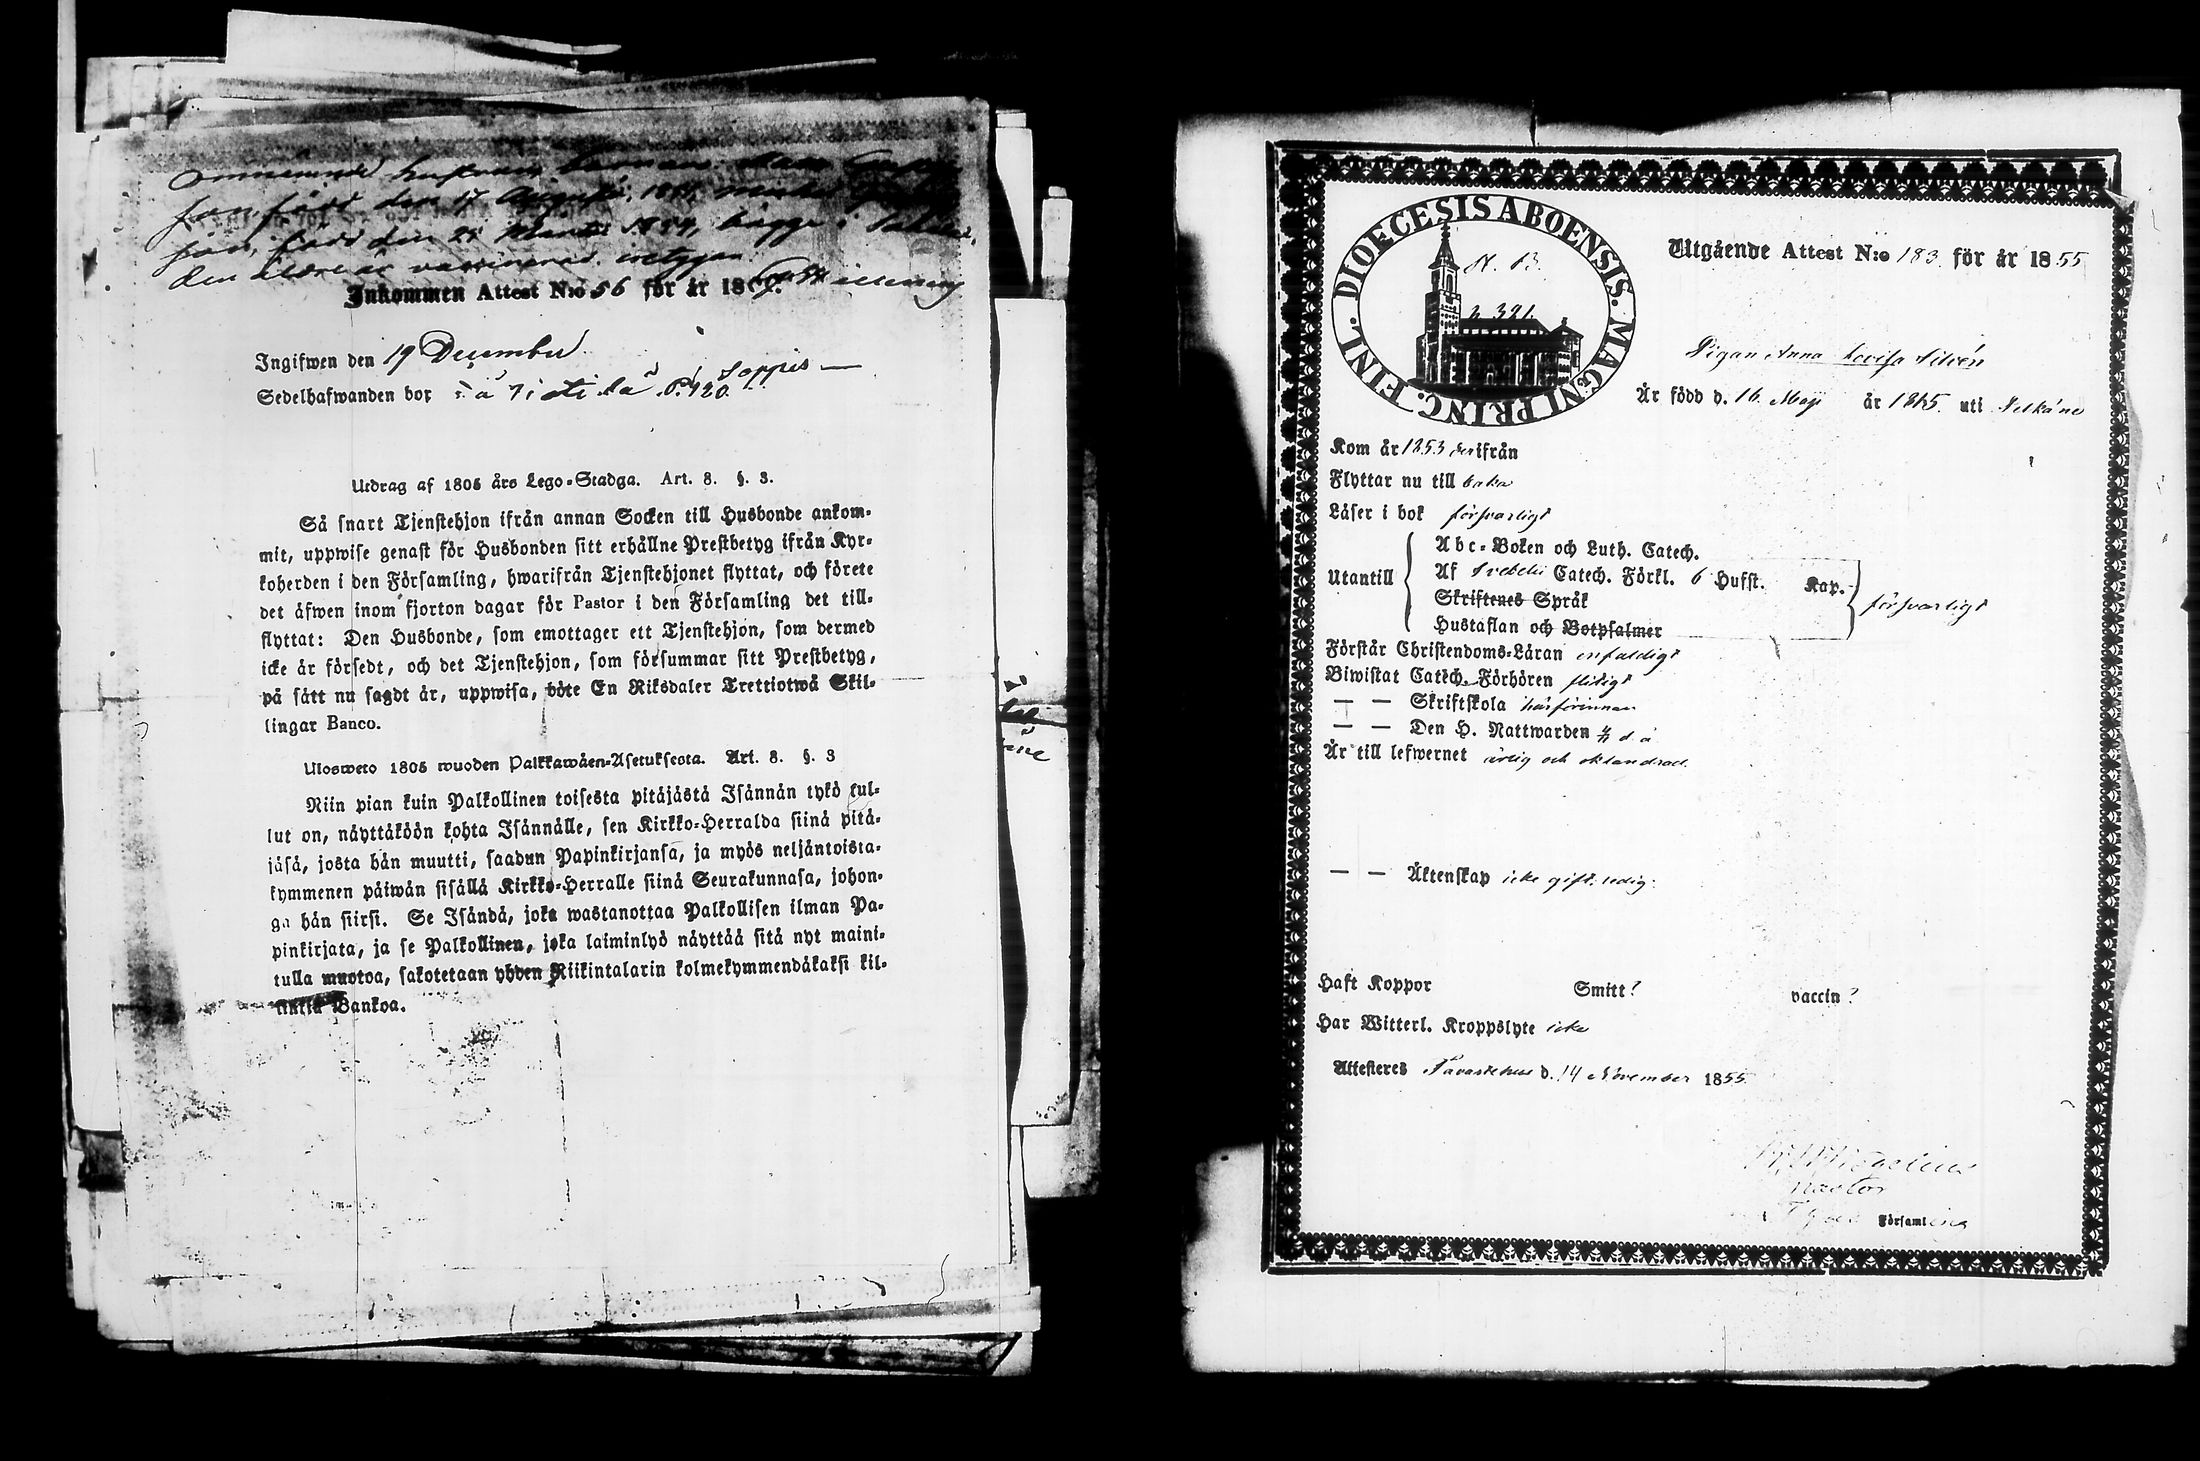 den 17 Augusti
född den 21 Martii 1854, bägge i
den äldre är vaccinerad, intygar
Inkommen Attest N:o 56 för år 18
Ingifwen den 19 December
Sedelhafwanden bor P. 420. Soppis —
Utdrag af 1805 års Lego-Stadga. Art. 8. §. 3.
Så snart Tjenstehjon ifrån annan Socken till Husbonde ankom-
mit, uppwise genast för Husbonden sitt erhållne Prestbetyg ifrån Kyr-
koherden i den Församling, hwarifrån Tjenstehjonet flyttat, och förete
det äfwen inom fjorton dagar för Pastor i den Församling det till-
flyttat: Den Husbonde, som emottager ett Tjenstehjon, som dermed
icke är försedt, och det Tjenstehjon, som försummar sitt Prestbetyg,
på sätt nu sagdt är, uppwisa, böte En Riksdaler Trettiotwå Skil-
lingar Banco.
Ulosweto 1805 wuoden Palkkawäen-Asetuksesta. Art. 8. §. 3
Niin pian kuin Palkollinen toisesta pitäjästä Isännän tykö tul-
lut on, näyttäköön kohta Isännälle, sen Kirkko-Herralda siinä pitä-
jäsä, josta hän muutti, saadun Papinkirjansa, ja myös neljäntoista-
kymmenen päiwän sisällä Kirkko-Herralle siinä Seurakunnasa, johon-
ga hän siirsi. Se Isändä, joka wastanottaa Palkollisen ilman Pa-
pinkirjata, ja se Palkollinen, joka laiminlyö näyttää sitä nyt maini-
tulla muotoa, sakotetaan yhden Riikintalarin kolmekymmendäkaksi kil-
linkiä Bankoa.
DIOECESIS ABOENSIS. MAGNI PRINC. FINL.
N. 13.
p. 391.
Utgående Attest N:o 183 för år 1855
Pigan Anna Lovisa Silvén
Är född d. 16 Maji år 1815 uti Pelkäne
Kom år 1853 derifrån
Flyttar nu till baka
Läser i bok försvarligt
Utantill
Abc-Boken och Luth. Catech.
Af Svebelii Catech. Förkl. 6 Hufst. Kap.
Skriftenes Språk
Hustaflan och Botpsalmer
försvarligt
Förstår Christendoms-Läran enfaldigt
Biwistat Catech. Förhören flitigt
— — Skriftskola härförinnan
— — Den H. Nattwarden d. å
Är till lefwernet ärlig och oklandrad.
— — Äktenskap icke gift, ledig.
Haft Koppor Smitt? vaccin?
Har Witterl. Kroppslyte icke
Attesteres Tavastehus d. 14 November 1855.
Pastor
Församling